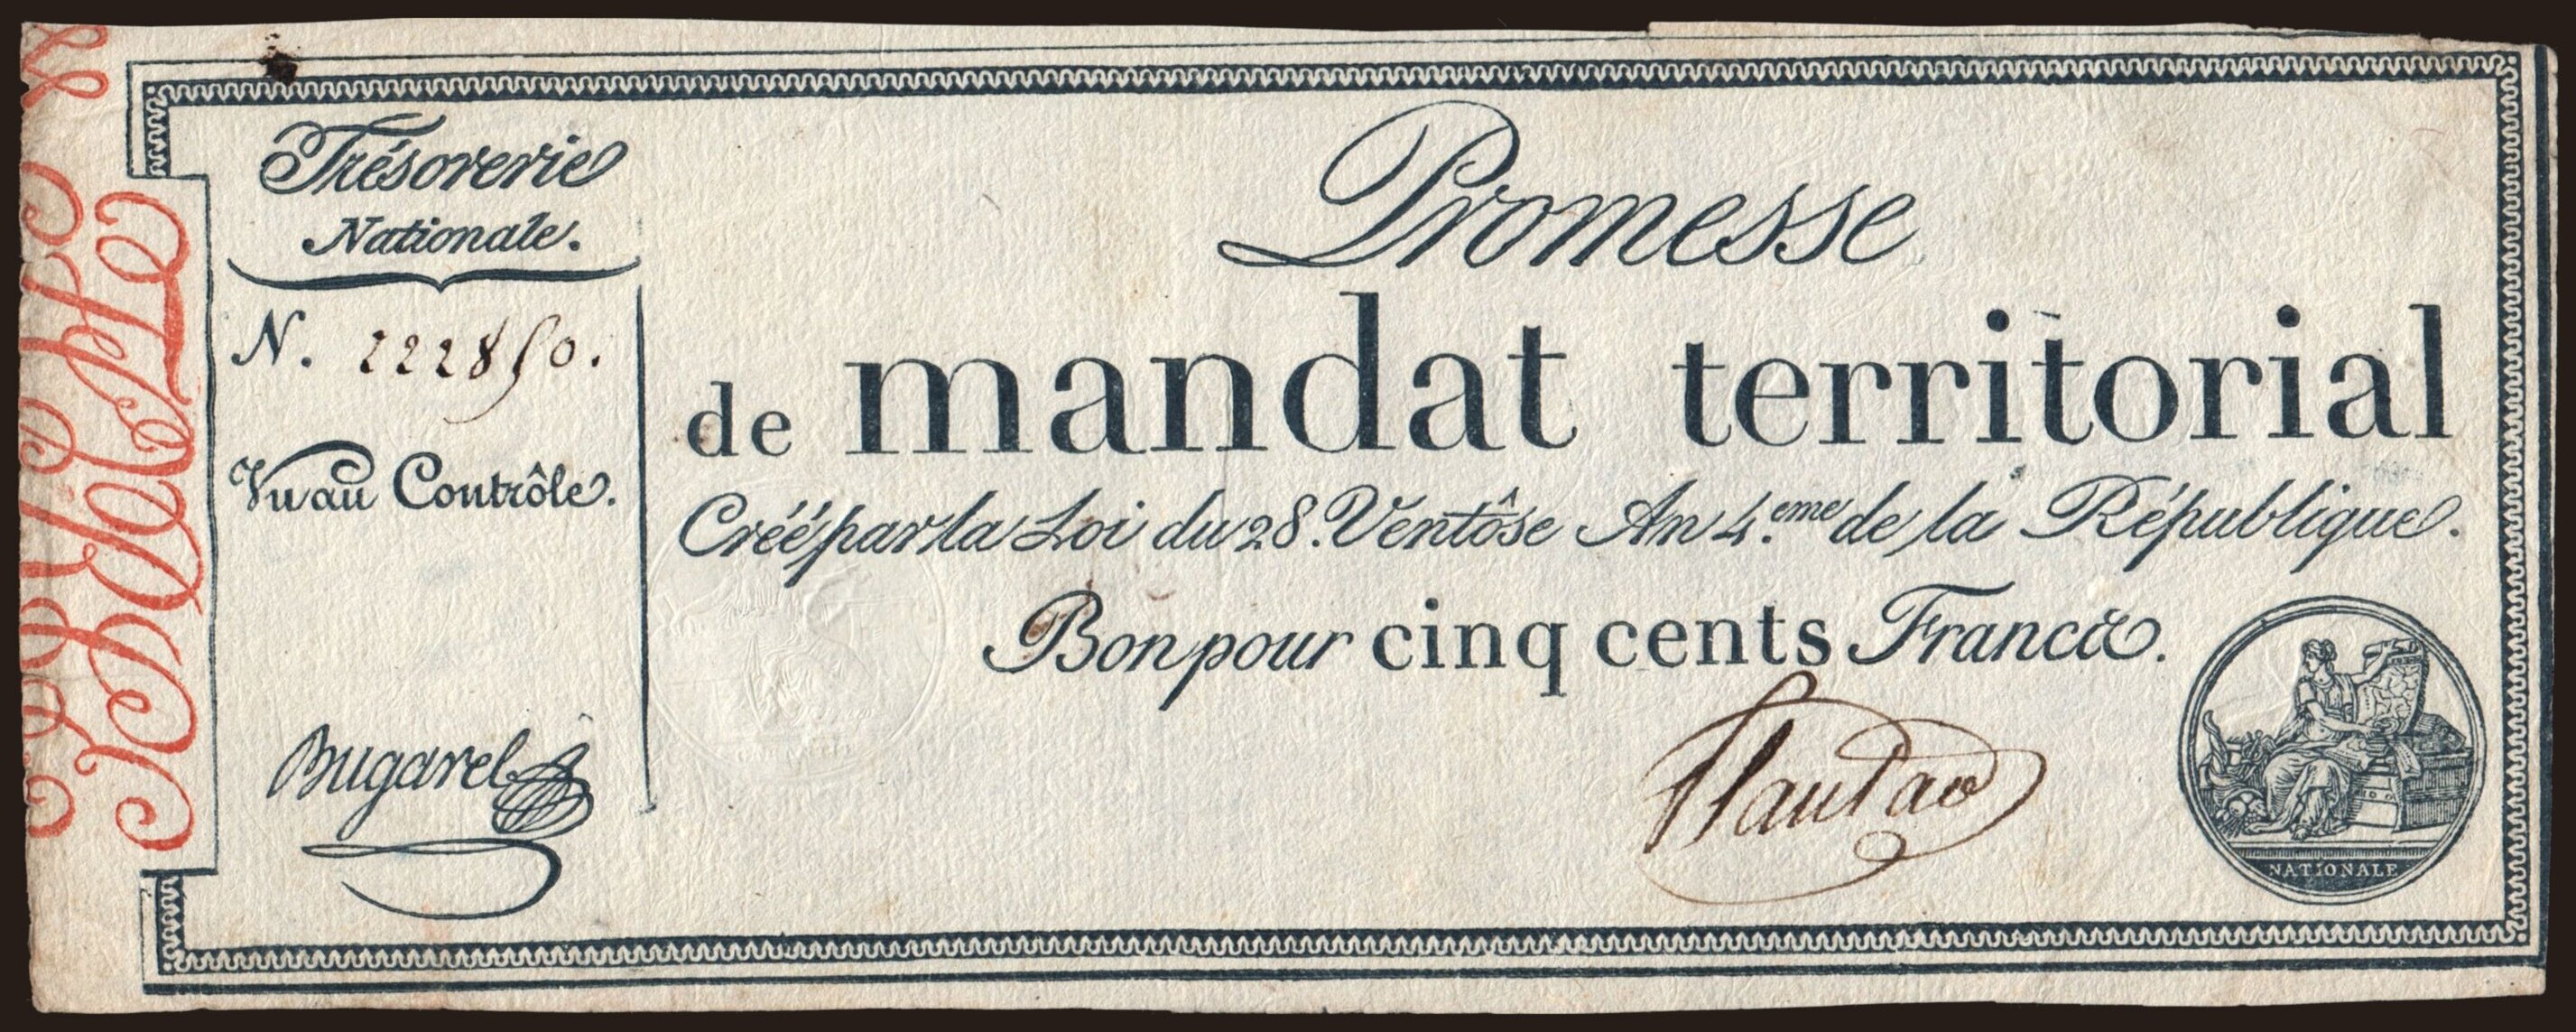 Trésorerie
Nationale.
N. 222850.
Vu au Contrôle.
Bugarel
Promesse
de mandat territorial
Créé par la Loi du 28. Ventôse An 4.eme de la République.
Bon pour cinq cents Francs.
NATIONALE